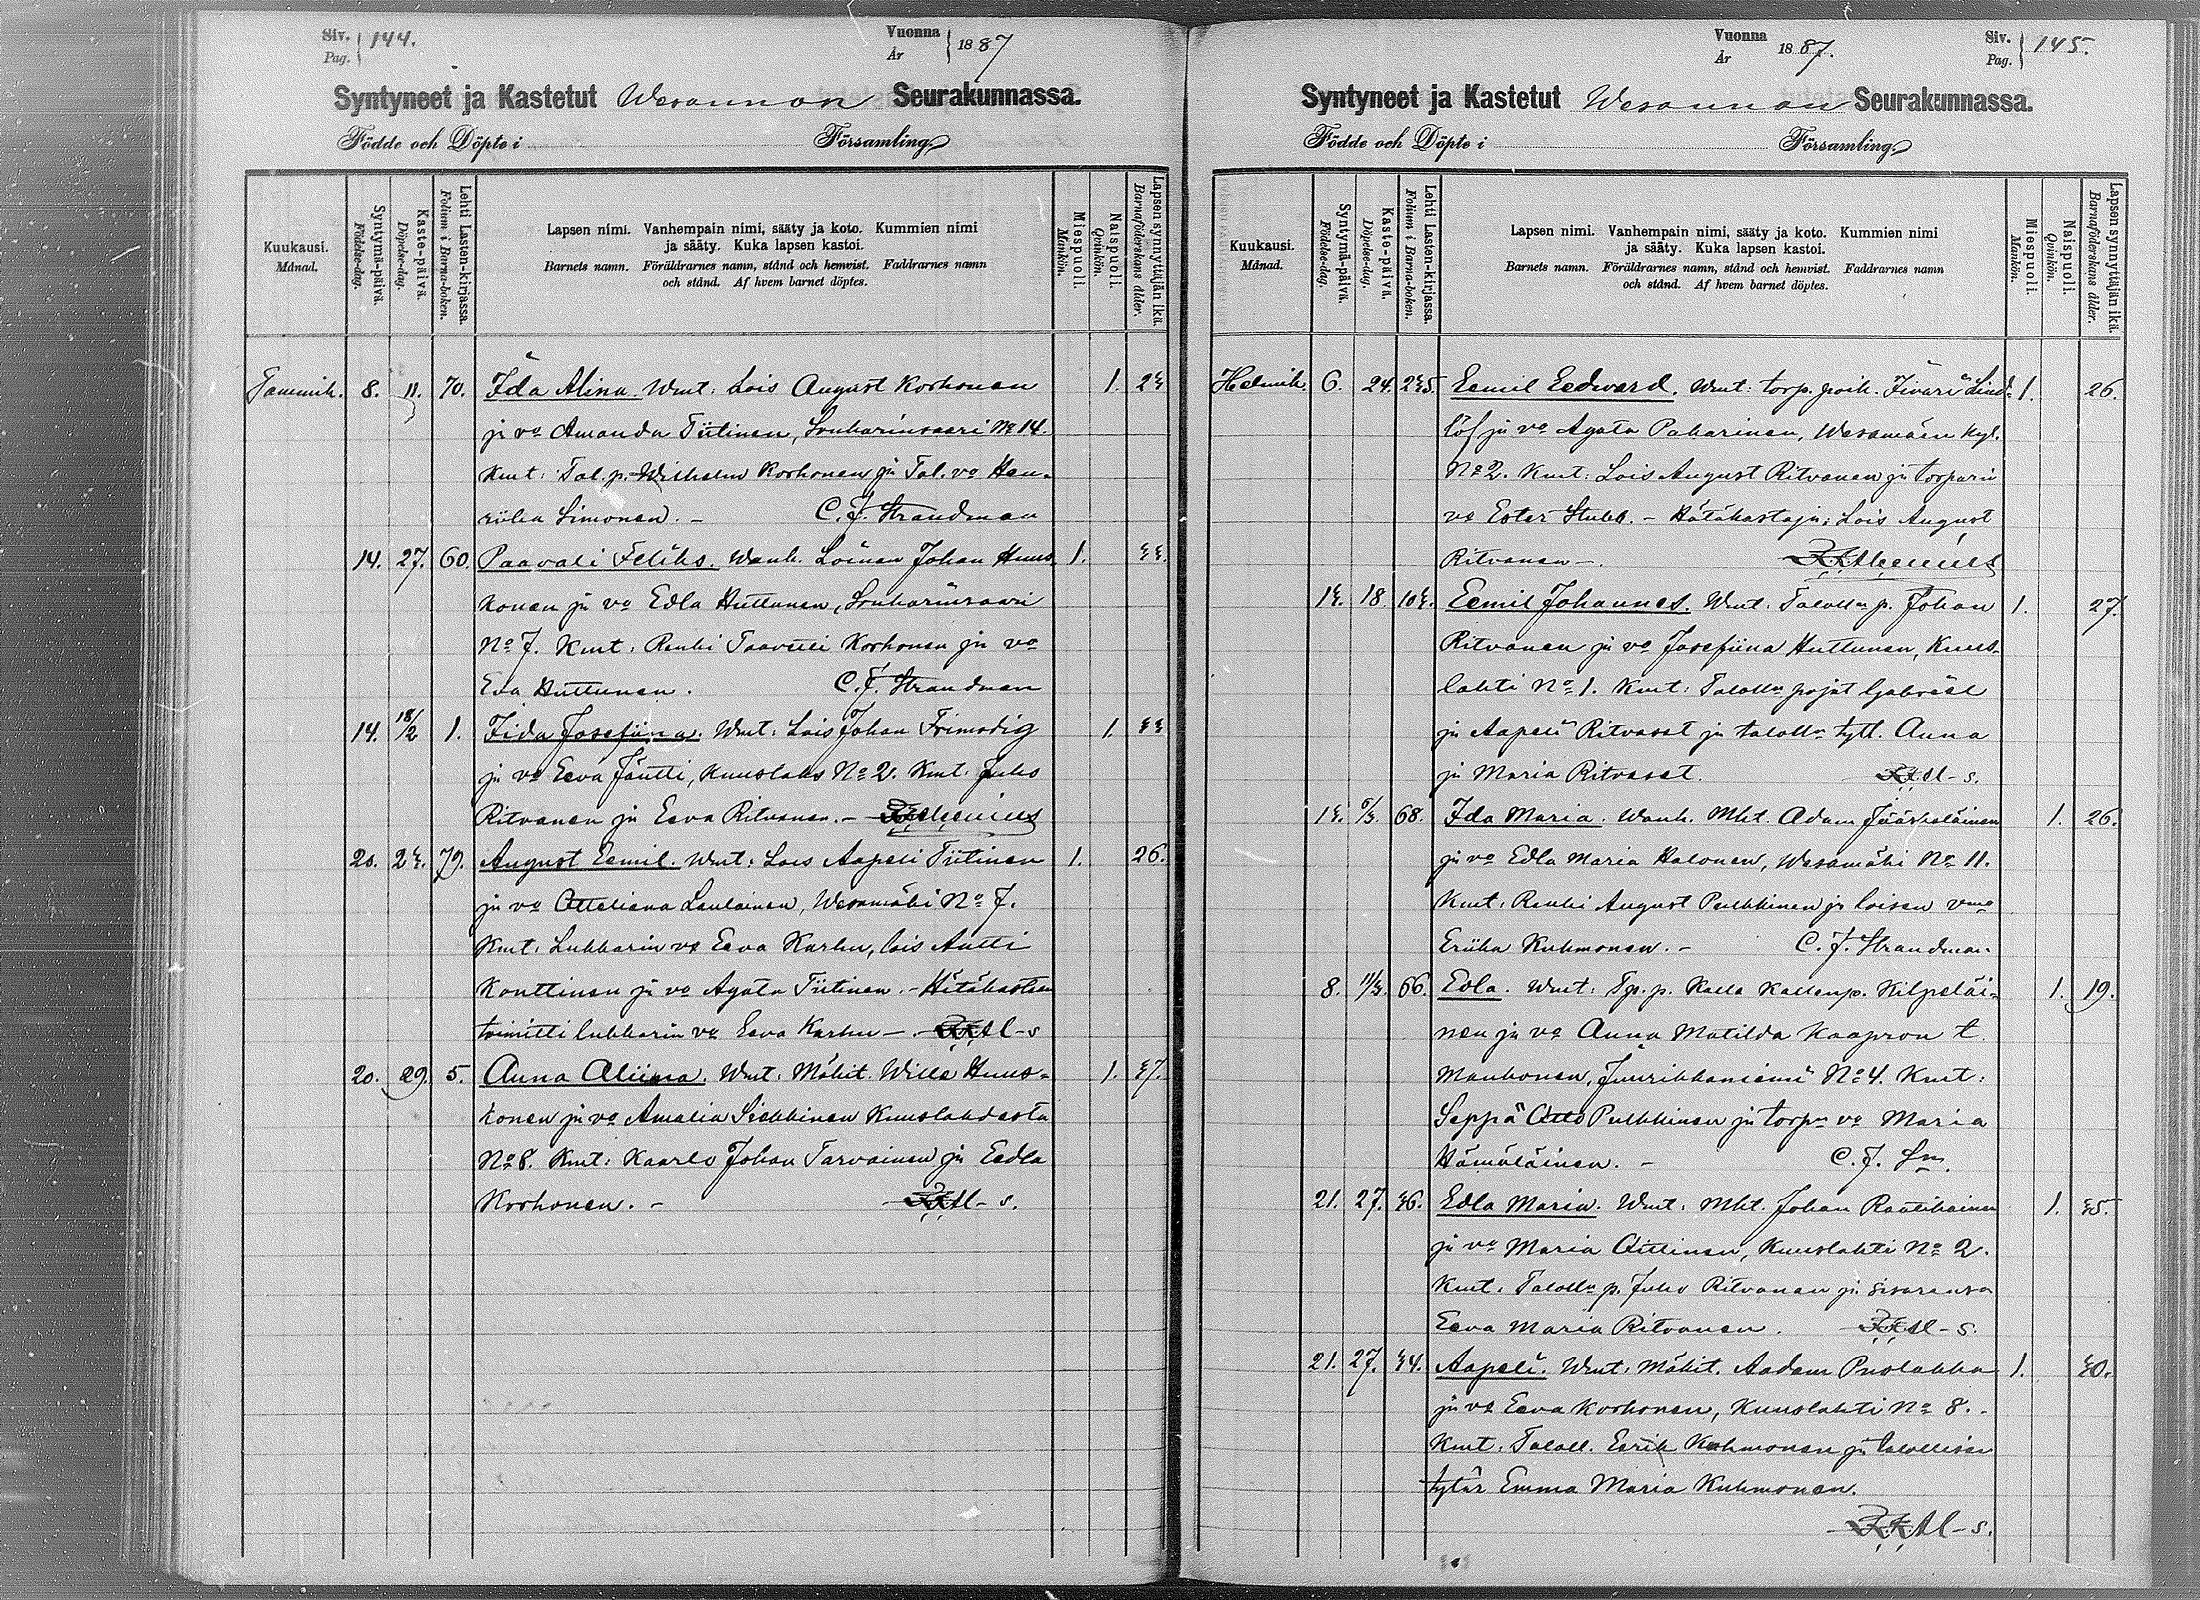 Siv. Pag. 144.
Vuonna År 1887
Syntyneet ja Kastetut Wesannon Seurakunnassa.
Födde och Döpte i Församling
Kuukausi. Månad.
Syntymä-päivä. Födelse-dag.
Kaste-päivä. Döpelse-dag.
Lehti Lasten-kirjassa. Folium i Barna-boken.
Lapsen nimi. Vanhempain nimi, sääty ja koto. Kummien nimi
ja sääty. Kuka lapsen kastoi.
Barnets namn. Föräldrarnes namn, stånd och hemvist. Faddrarnes namn
och stånd. Af hvem barnet döptes.
Miespuoli. Mankön.
Naispuoli. Qvinkön.
Lapsen synnyttäjän ikä. Barnaföderskans ålder.
Tammik. 8. 11. 70. Ida Alina. Wmt: Lois August Korhonen 1. 24
ja vo Amanda Tiitinen, Sonkarinsaari No 14.
Kmt: Tal. p. Wilhelm Korhonen ja Tal. vo Hen-
riika Simonen. – C. F. Strandman
14. 27. 60. Paavali Feliks. Wanh. Loinen Johan Huus- 1. 44.
konen ja vo Edla Huttunen, Sonkarinsaari
No 7. Kmt: Renki Taavetti Korhonen ja vo
Eva Huttunen. C. F. Strandman
14. 18/2 1. Iida Josefiina. Wmt: Lois Johan Frimodig 1. 44
ja vo Eeva Jäntti, Kuuslaks No 2. Kmt: Juho
Ritvanen ja Eeva Ritvanen. –
20. 24. 79. August Eemil. Wmt: Lois Aapeli Tiitinen 1. 26.
ja vo Otteliana Laulainen, Wesamäki No 7.
Kmt: Lukkarin vo Eeva Karhu, lois Antti
Konttinen ja vo Agata Tiitinen. – Hätäkasteen
toimitti lukkarin vo Eeva Karhu – Al-s
20. 29. 5. Anna Aliina. Wmt: Mäkit. Wille Huus- 1. 47.
konen ja vo Amalia Siekkinen Kuuslahdesta
No 8. Kmt: Kaarlo Johan Tarvainen ja Eedla
Korhonen. – Al-s.
Vuonna År 1887.
Siv. Pag. 145.
Syntyneet ja Kastetut Wesannon Seurakunnassa.
Födde och Döpte i Församling
Kuukausi. Månad.
Syntymä-päivä. Födelse-dag.
Kaste-päivä. Döpelse-dag.
Lehti Lasten-kirjassa. Folium i Barna-boken.
Lapsen nimi. Vanhempain nimi, sääty ja koto. Kummien nimi
ja sääty. Kuka lapsen kastoi.
Barnets namn. Föräldrarnes namn, stånd och hemvist. Faddrarnes namn
och stånd. Af hvem barnet döptes.
Miespuoli. Mankön.
Naispuoli. Qvinkön.
Lapsen synnyttäjän ikä. Barnaföderskans ålder.
Helmik. 6. 24. 245. Eemil Eedward. Wmt: torp. poik. Iivari Lind- 1. 26.
löf ja vo Agata Pakarinen, Wesamäen kyl.
No 2. Kmt: Lois August Ritvanen ja torparin
vo Ester Stubb. – Hätäkastaja: Lois August
Ritvanen –.
14. 18. 104. Eemil Johannes. Wmt: Talolln p. Johan 1. 27.
Ritvanen ja vo Josefiina Huttunen, Kuus-
lahti No 1. Kmt: Talolln pojat Gabriel
ja Aapeli Ritvaset ja talolln tytt. Anna
ja Maria Ritvaset. Al-s.
14. 6/3. 68. Ida Maria. Wanh. Mkt. Adam Jääskeläinen 1. 26.
ja vo Edla Maria Halonen, Wesamäki No 11.
Kmt: Renki August Pulkkinen ja loisen vmo
Eriika Kuhmonen. – C. F. Strandman.
8. 11/3. 66. Edla. Wmt: Tp. p. Kalle Kallenp. Kilpeläi- 1. 19.
nen ja vo Anna Matilda Kaapron t.
Manhonen, Juurikkaniemi No 4. Kmt:
Seppä Otto Pulkkinen ja torpn vo Maria
Hämäläinen. – C. F. Sm.
21. 27. 46. Edla Maria. Wmt: Mkt. Johan Raatikainen 1. 45.
ja vo Maria Oittinen, Kuuslahti No 2.
Kmt: Talolln p. Juho Ritvanen ja sisarensa
Eeva Maria Ritvanen. Al-s.
21. 27. 44. Aapeli. Wmt: Mäkit. Aadam Puolakka 1. 40.
ja vo Eeva Korhonen, Kuuslahti No 8. –
Kmt: Taloll. Eerik Kuhmonen ja talollisen
tytär Emma Maria Kuhmonen.
Al-s.